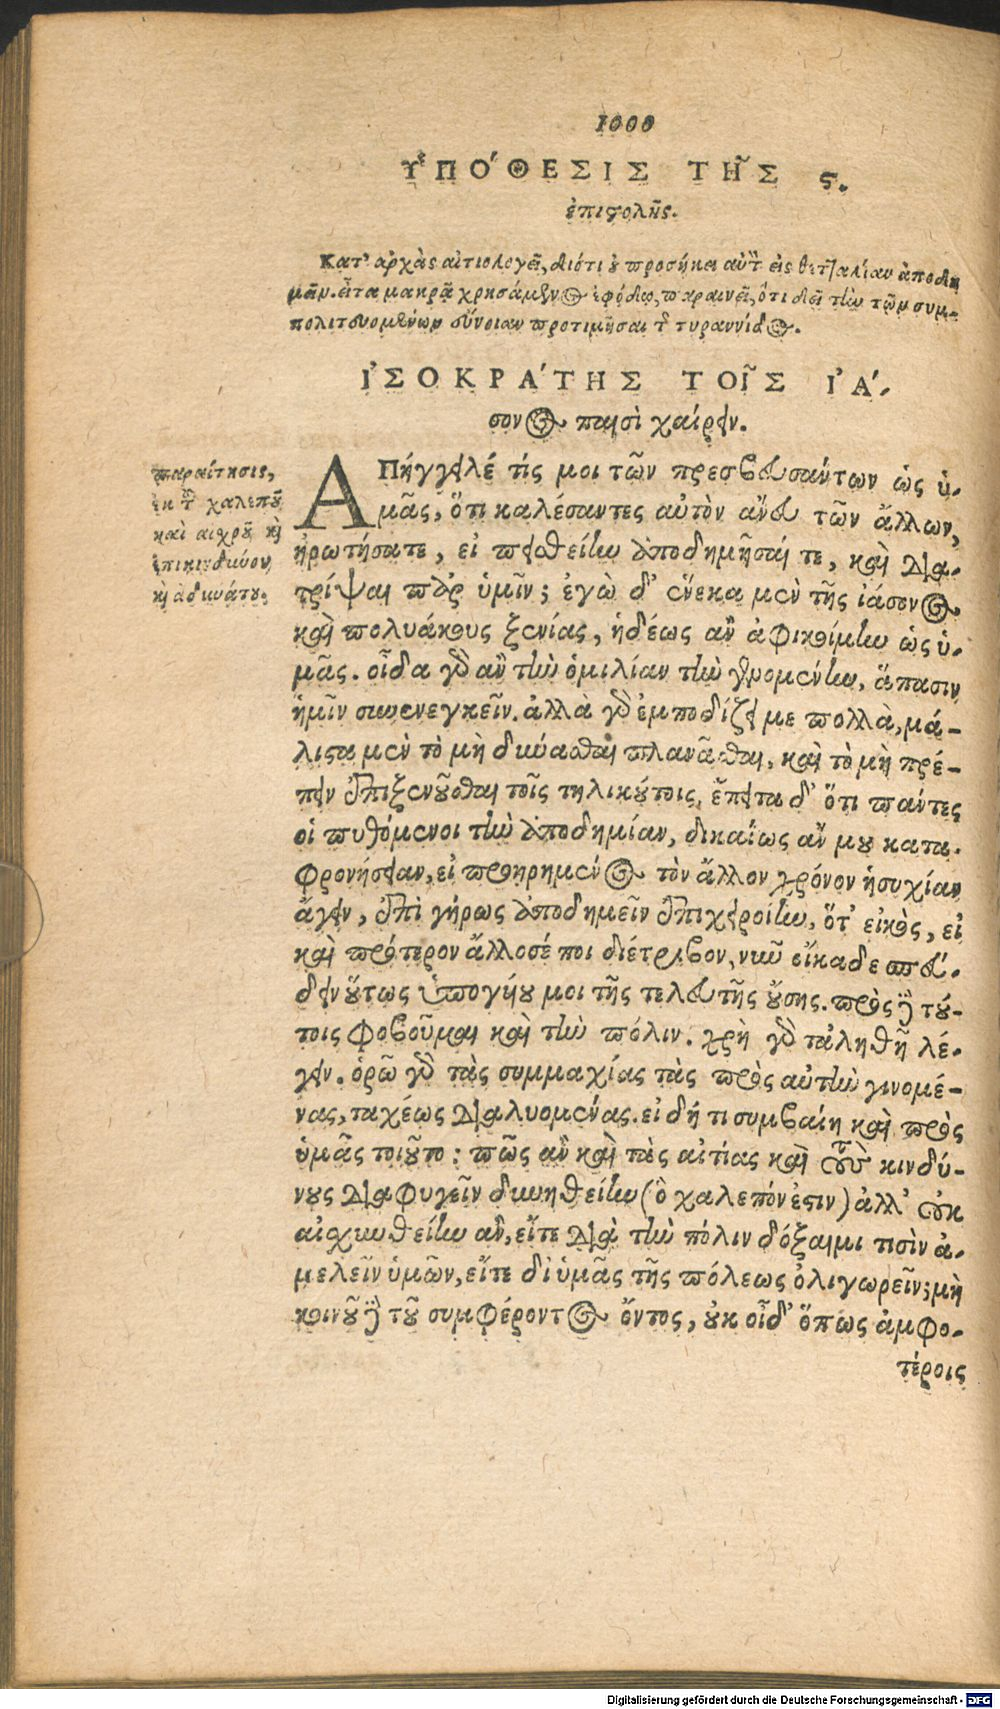 1000
ΥΠΟ΄ΘΕΣΙΣ ΤΗ͂Σ ϛ.
ἐπιϛολῆς.
Κατ' ἀρχὰς αἰτιολογεῖ, διότι ȣ προσήκει αὐτ εἰς θετταλίαν ἀποδη
μεῖν. εἶτα μακρᾷ χρησάμενος ἐφόδῳ, παραινεῖ, ὅτι δεῖ τὴν τῶν συμ-
πολιτευομένων εὔνοιαν προτιμῆσαι τ τυραννίδος.
ἸΣΟΚΡΑ΄ΤΗΣ ΤΟΙ͂Σ ἸΑ΄-
σονος παισὶ χαίρειν.
παραίτησις,
ἐκ τȣ χαλεπȣ͂
καὶ αἰχρȣ͂ κὶ
ἐπικινδύνȣ
κὶ ἀδυνάτȣ.
ΑΠήγγειλέ τίς μοι τῶν πρεσβευσάντων ὡς ὑ-
μᾶς, ὅτι καλέσαντες αὐτὸν ἄνευ τῶν ἄλλων,
ἠρωτήσατε, εἰ πειθείην ἀποδημῆσαί τε, καὶ δια-
τρίψαι παρ ὑμῖν; ἐγὼ δ' ἕνεκα μὲν τῆς ἰάσονος
καὶ πολυάκȣς ξενίας, ἡδέως ἂν ἀφικοίμην ὡς ὑ-
μᾶς. οἶδα γὰρ ἂν τὴν ὁμιλίαν τὴν γενομένην, ἅπασιν
ἡμῖν συνενεγκεῖν. ἀλλὰ γὰρ ἐμποδίζει με πολλὰ, μά-
λιϛα μὲν τὸ μὴ δύνασθαι πλανᾶσθαι, καὶ τὸ μὴ πρέ-
πειν ἐπιξενȣ͂σθαι τοῖς τηλικȣ́τοις, ἔπειτα δ' ὅτι πάντες
οἱ πυθόμενοι τὴν ἀποδημίαν, δικαίως ἄν μȣ κατα-
φρονήσειαν, εἰ προῃρημένος τὸν ἄλλον χρόνον ἡσυχίαν
ἄγειν, ἐπὶ γήρως ἀποδημεῖν ἐπιχειροίην, ὅτ' εἰκὸς, εἰ
καὶ πρότερον ἄλλοσέ ποι διέτριβον, νῦν οἴκαδε σπεύ-
δειν ȣ́τως ὑπογύȣ μοι τῆς τελευτῆς ȣ́σης. πρὸς δὲ τȣ́-
τοις φοβοῦμαι καὶ τὴν πόλιν. χρὴ γὰρ τἀληθῆ λέ-
γειν. ὁρῶ γὰρ τὰς συμμαχίας τὰς πρὸς αὐτὴν γινομέ-
νας, ταχέως διαλυομένας. εἰ δή τι συμβαίη καὶ πρὸς
ὑμᾶς τοιȣ͂το: πῶς ἂν καὶ τὰς αἰτίας καὶ τοὺς κινδύ-
νȣς διαφυγεῖν δυνηθείην (ὃ χαλεπόν ἐϛιν) ἀλλ' οὐκ
αἰσχυνθείην ἂν, εἴτε διὰ τὴν πόλιν δόξαιμι τισὶν ἀ-
μελεῖν ὑμῶν, εἴτε δι ὑμᾶς τῆς πόλεως ὀλιγωρεῖν; μὴ
κοινȣ͂ δὲ τȣ͂ συμφέροντος ὄντος, ȣκ οἶδ' ὅπως ἀμφο-
τέροις
Digitalisierung gefördert durch die Deutsche Forschungsgemeinschaft - DFG